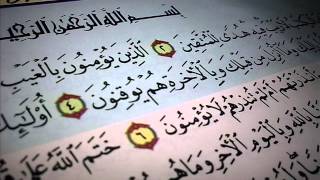 بِسْمِ اللَّهِ الرَّحْمَٰنِ الرَّحِيمِ
فِيهِ هُدًى لِّلْمُتَّقِينَ ٢ الَّذِينَ يُؤْمِنُونَ بِالْغَيْبِ
إِلَيْكَ وَمَا أُنزِلَ مِن قَبْلِكَ وَبِالْآخِرَةِ هُمْ يُوقِنُونَ ٤ أُولَٰئِكَ
أَمْ لَمْ تُنذِرْهُمْ لَا يُؤْمِنُونَ ٦ خَتَمَ اللَّهُ عَلَىٰ
بِاللَّهِ وَبِالْيَوْمِ الْآخِرِ وَمَا هُم